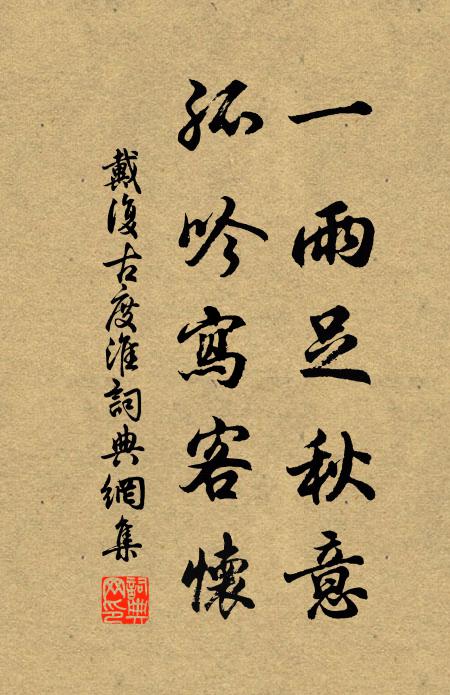 一雨足秋意
孤吟寫客懷
戴復古度淮詞典網集
詞典網印